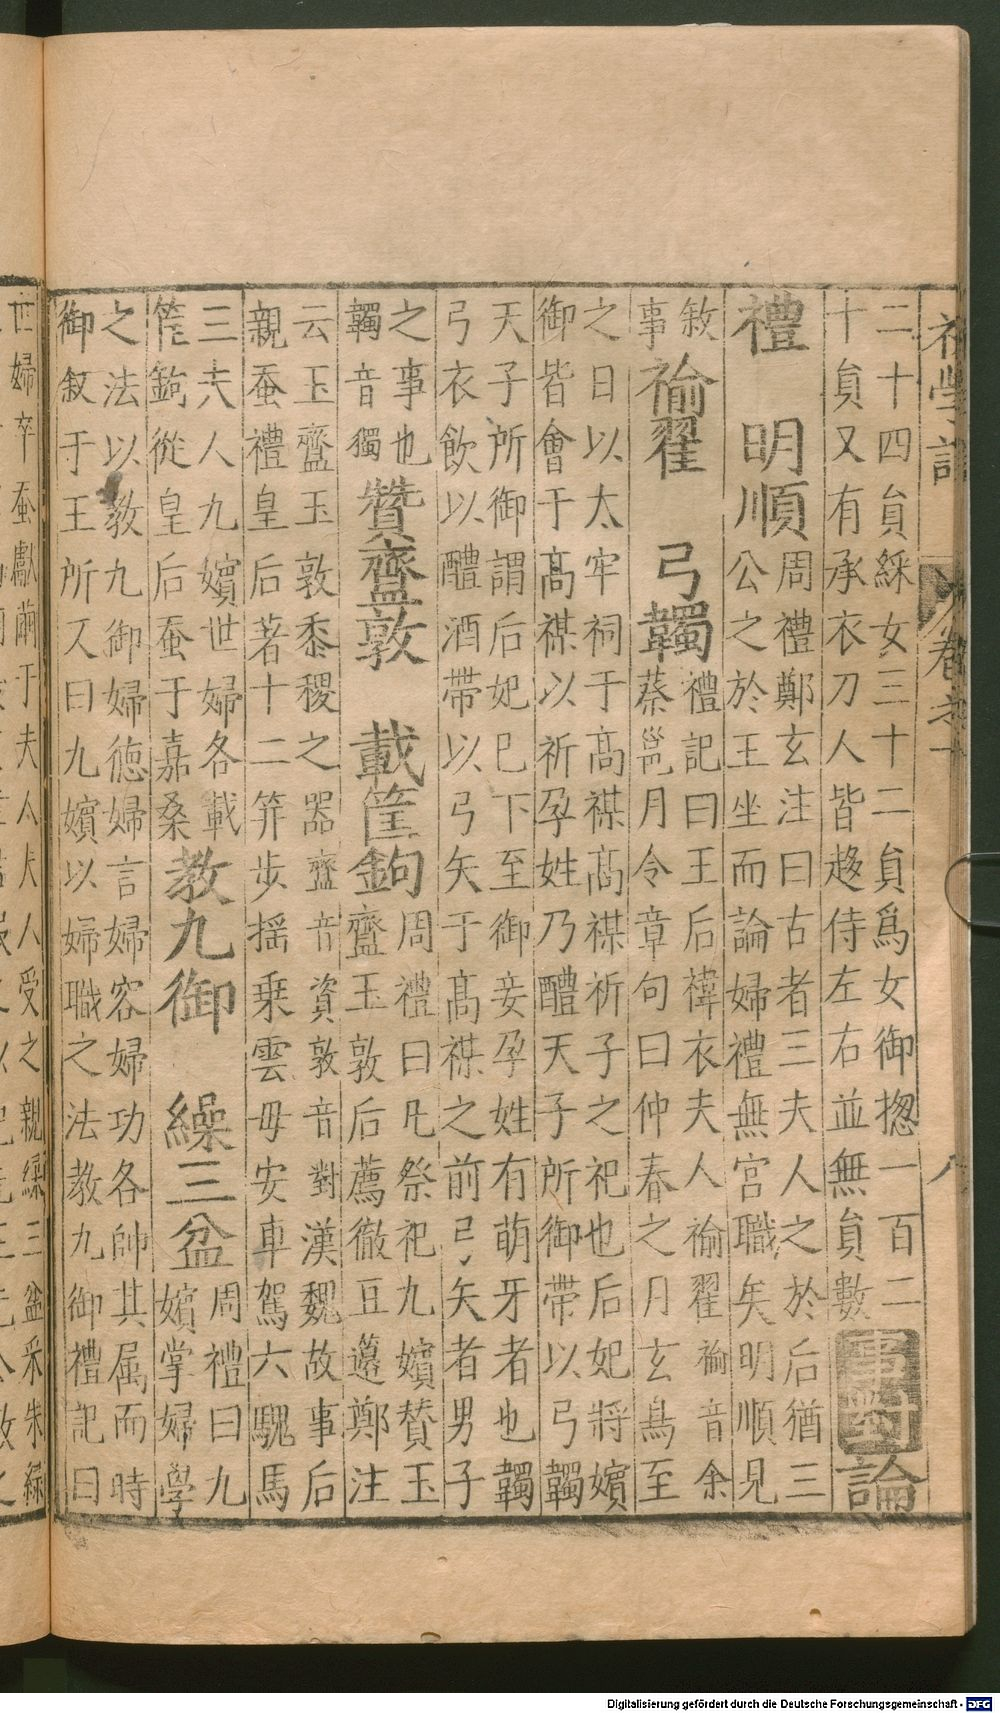 二十四員綵女三十二貟爲女御揔一百二
十貟又有承衣刀人皆趍侍左右並無貟數
事對
論
禮
明順
周禮鄭玄注曰古者三夫人之於后猶三
公之於王坐而論婦禮無官職矣明順見
敘
事
褕翟
弓韣
禮記曰王后褘衣夫人褕翟褕音余
蔡邕月令章句曰仲春之月玄鳥至
之日以太牢祠于高禖高禖祈子之祀也后妃將嬪
御皆會于髙禖以祈孕姓乃醴天子所御帶以弓韣
天子所御謂后妃已下至御妾孕姓有萌牙者也韣
弓衣飲以醴酒帶以弓矢于髙禖之前弓矢者男子
之事也
韣音獨
贊齍敦
載筐鉤
周禮曰凡祭祀九嬪贊玉
齍玉敦后薦徹豆籩鄭注
云玉齍玉敦黍稷之器齍音資敦音對漢魏故事后
親蚕禮皇后著十二笄步揺乗雲毋安車駕六騩馬
三夫人九嬪世婦各載
筐鉤從皇后蚕于嘉桑
教九御
繰三盆
周禮曰九
嬪掌婦學
之法以教九御婦徳婦言婦容婦功各帥其属而時
御叙于王所又曰九嬪以婦職之法教九御禮記曰
卷
八
Digitalisierung gefördert durch die Deutsche Forschungsgemeinschaft - DFG